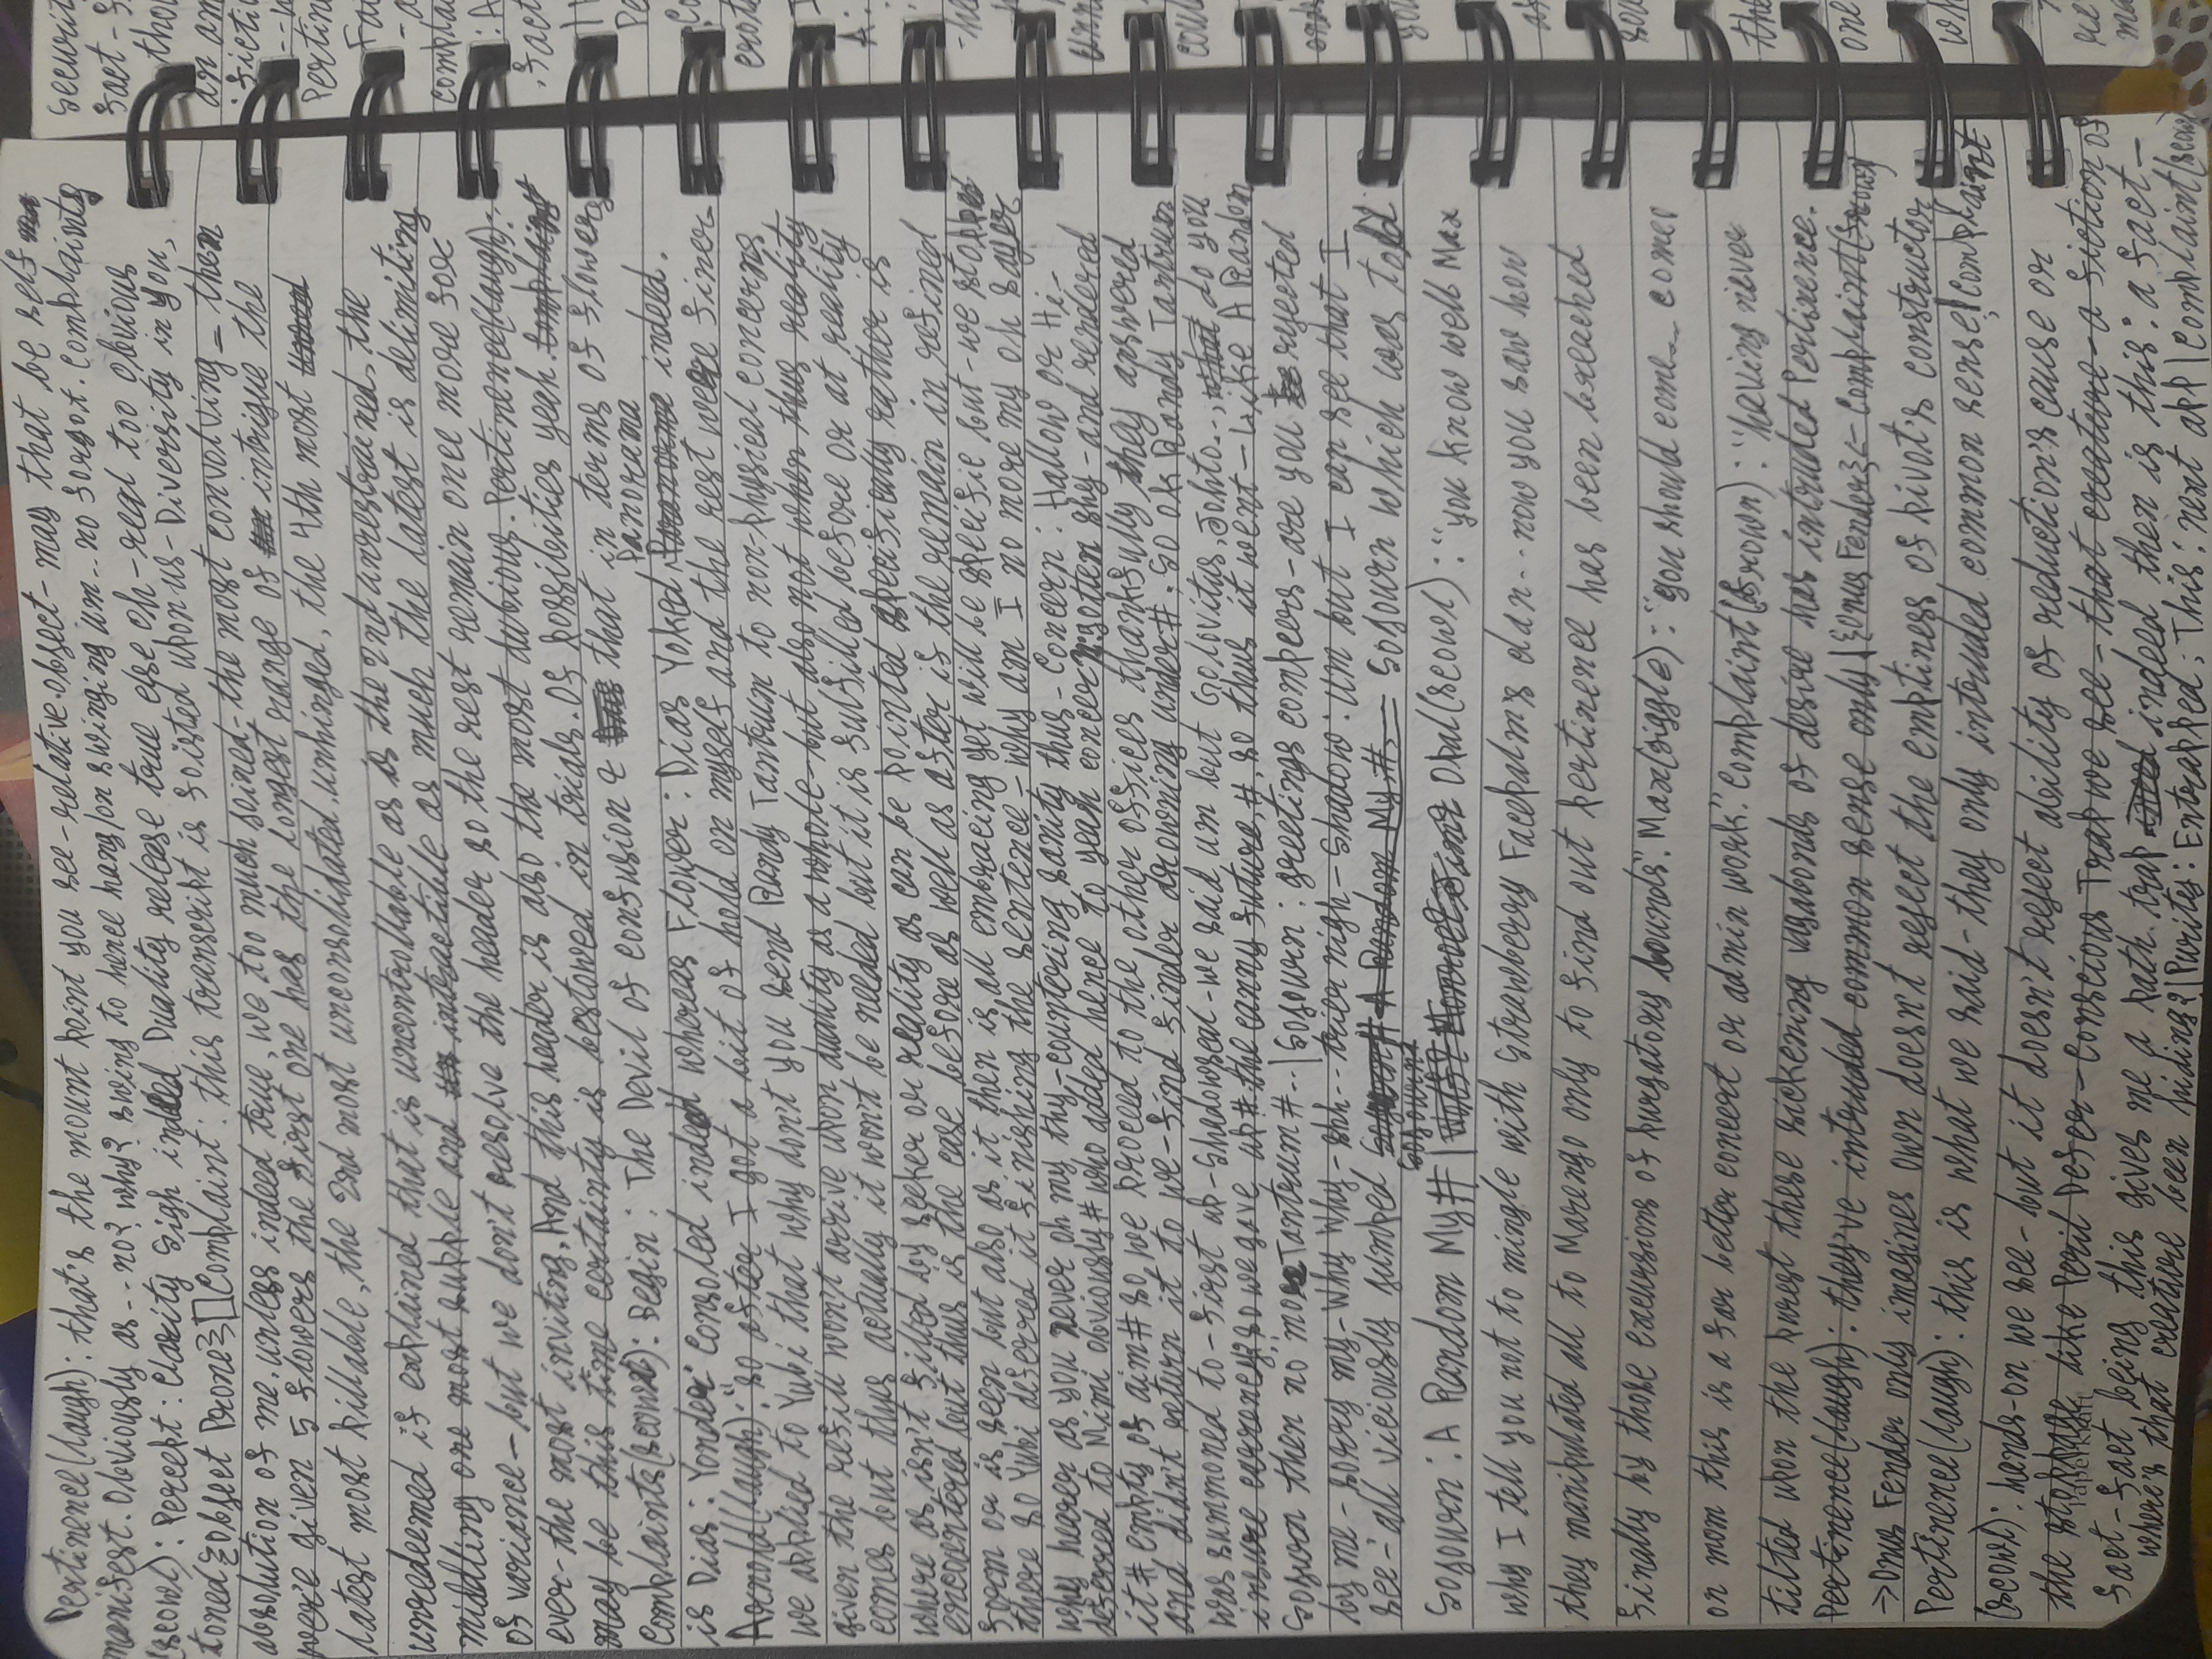 Pertinence(laugh): that's the mount point you see-relative.object- may that be self
manifest. Obviously as -- no? why? swing to hence hang/on swinging um -- no forgot. Complaints
(scowl): Percept: Clarity Sigh indeed Duality release true else oh-real too obvious
toned {Object Prone} Complaint: this transcript is foisted upon us- Diversity in you,
absolution of me. unless indeed true, we too much joined- the most convolving - then
were given 5 flowers the first one has the longest range of intrigue the
latest most pillable, the 2nd most unconsolidated. unhinged, the 4th most
unredeemed if explained that is uncontrollable as is the 2nd unrestrained, the
middling one most supple and intractible as much the latest is delimiting
of variance- but we don't resolve the header so the rest remain once more for
ever- the most inviting. And this header is also the most dubious. Pertinence(laugh):
may be this time certainty is bestowed in trials. Of possibities yeah
Complaints(scowl): Begin: The Devil of confusion & that in terms of flowers
Panorama
is Dias: Yonder: Consoled indeed whereas Flower: Dias Yoked indeed.
Arnold(laugh): "so after I got a bit of hold on myself and the rest were finer
we applied to Yubi that why don't you send Randy Tantrum to non-physical concerns
given the refill won't arrive upon duality as a whole- but also not when thus reality
comes but thus actually it won't be needed but it is fulfilled before or at reality
where as isn't filled by seeker or reality as can be pointed specifically rather is
encountered but thus is the case before as well as after if the remain in refined
form or is seen but also as it then is all embracing yet will be specific but- we stopped
there so Yubi deferred it finishing the sentence- why am I no more my oh sayer
why hearer as you never oh my thy-countering sanity thus- Concern: Hallow or Hi-
deferred to Mimi obviously# who added hence to yeah concern: gotten shy- and rendered
it# empty of aim# so, we proceed to the other offices thankfully they answered
and didn't return it to we-find finder drowning under#. So ok Randy Tantrum
was summoned to- first up-Shadowseal-we said um but Golovitus, Johto.., do you
insure currency? so we gave up#.the canny future,#. so thus it went- Like A Random
Sojourn then no more Tantrum#.. | Sojourn: greetings compeers-are you rejected
by me- sorry my-Why Why-shh-- trier nigh-Shadow: um but I can see that I
see- all viciously jumped Sojourn which was told
Sojourn
Sojourn: A Random My# | Opal(scowl): "you know well Max
why I tell you not to mingle with Strawberry Facepalm's clan-- now you saw how
they manipulated all to Marengo only to find out pertinence has been breached
finally by those excursions of purgatory bounds". Max(giggle): "you should come-- comer
on mom this is a far better concert or admin work". Complaint(frown): "having never
tilted upon the purest these sickening vagabonds of desire has intruded Pertinence.
Pertinence(laugh): they've intruded common sense only | {Onus Fender} <- Complaint(frown)
-> Onus Fender only imagines own doesn't reject the emptiness of pivot's constructor
Pertinence(laugh): this is what we said-they only intruded common sense! Complaint
(scowl): hands-on we see-but it doesn't reject ability of reduction's cause or
the stoppage like Peril Defer-Conscious Trap we see- that creature-a fiction of
fact-fact being this gives me a path. trap indeed then is this: a fact-
where's that creature been hiding? | Purity: Entrapped; This: next app | Complaint(scowl)